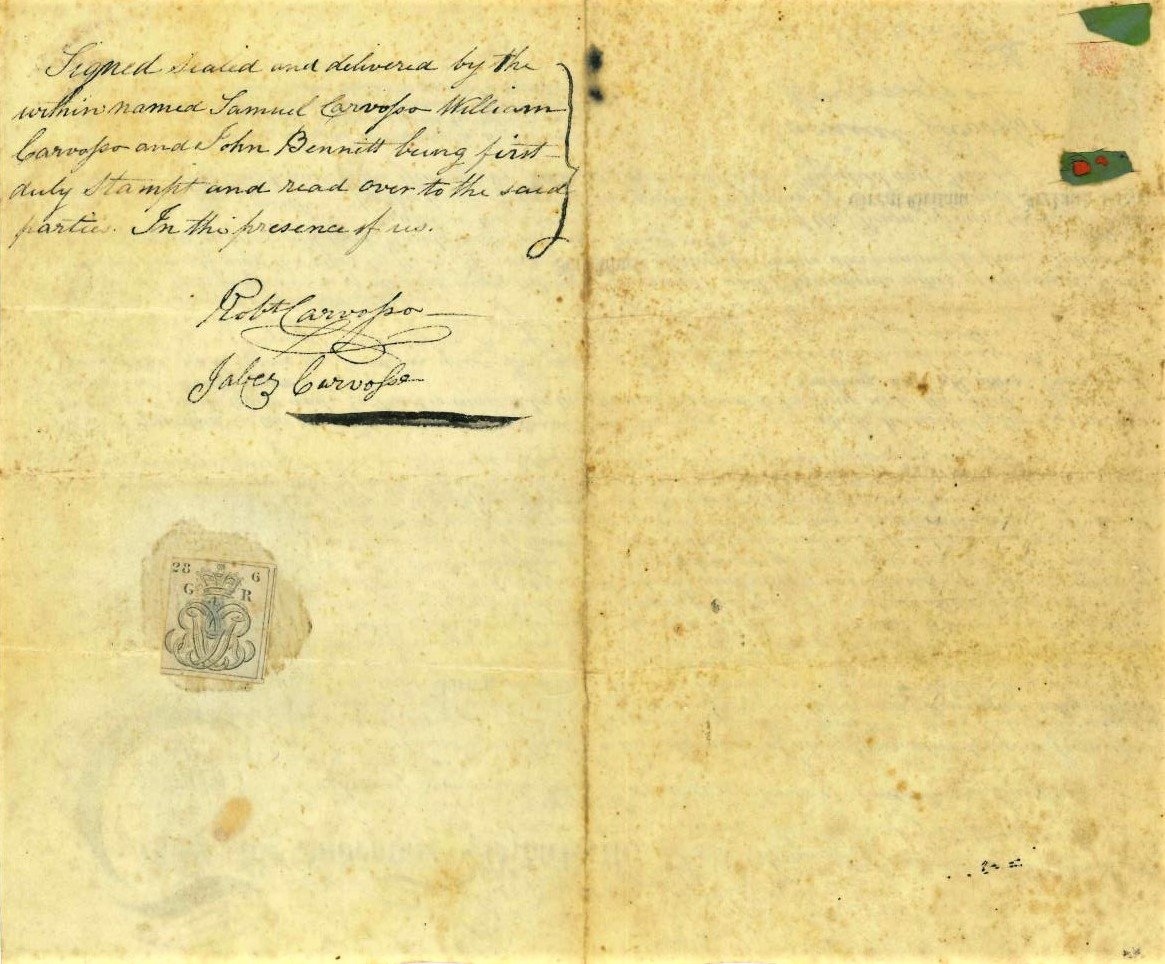 Signed sealed and delivered by the
within named Samuel Carvosso William
Carvosso and John Bennett being first
duly Stampt and read over to the said
parties. In the presence of us.
Robt Carvosso
Jabez Carvosso
28 6
G R